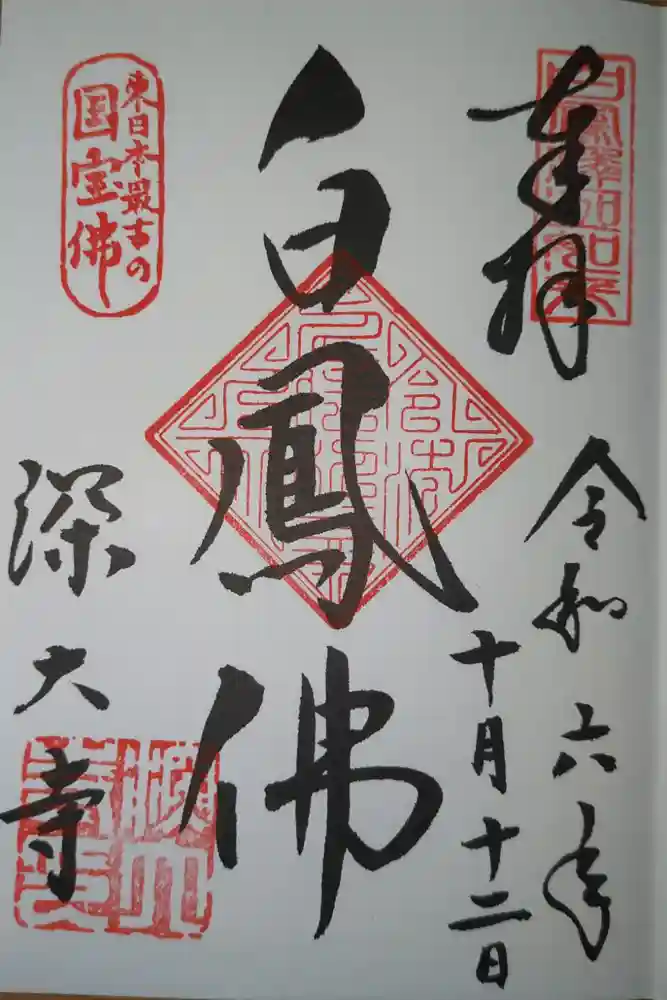 奉拝
令和六年
十月十二日
白鳳佛
東日本最古の
国宝佛
深大寺